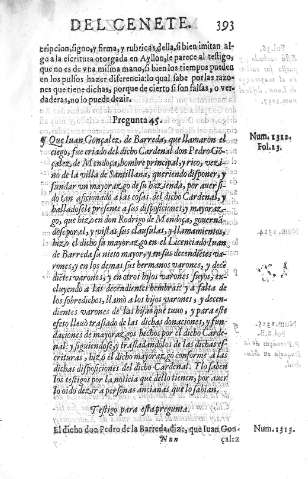 DEL CENETE. 393
cripcion, signo, y firma, y rubricas della, si bien imitan al-
go a la escritura otorgada en Ayllon, le parece al testigo,
que no es de vna misma mano, si bien los tiempos pueden
en los pulsos hazer diferencia: lo qual sabe por las razo-
nes que tiene dichas, porque de cierto si son falsas, o ver-
daderas, no lo puede dezir.
Pregunta 45.
Que Iuan Gonçalez, de Barreda, que llamaron el
ciego, fue criado del dicho Cardenal don Pedro Gõ-
çalez de Mendoça, hombre principal, y rico, vezi-
no de la villa de Santillana, queriendo disponer, y
fundar vn mayorazgo de su hazienda, por auer si-
do tan aficionado a las cosas del dicho Cardenal, y
a sus disposiciones, y mayoraz-
go, que hizo en don Rodrigo de Mendoça,
y vista sus clausulas, y llamamientos,
hizo el dicho su mayorazgo en el Licenciado Iuan
de Barreda su nieto mayor, y en sus decendiẽtes va-
rones, y en los demas sus hermanos varones, y decẽ-
dietes varones, y en otros hijos varones suyos, ex-
cluyendo a las decendientes hembras: y a falta de
los sobredichos, llamò a los hijos varones, y decen-
dientes varones de las hijas que tuuo, y para este
efeto lleuò traslado de las dichas donaciones, y fun-
daciones de mayorazgos hechos por el dicho Carde-
nal: y siguiendose, y trasladandolos de las dichas es-
crituras, hizo el dicho mayorazgo conforme a las
dichas disposiciones del dicho Cardenal. Y lo saben
los testigos por la noticia que dello tienen, por auer
lo oido dezir a personas ancianas que lo sabian.
Testigo para esta pregunta.
El dicho don Pedro de la Barreda, dize, que Iuan Gon-
Nnn çalez
Num. 1312.
Fol. 13.
Num. 1313.